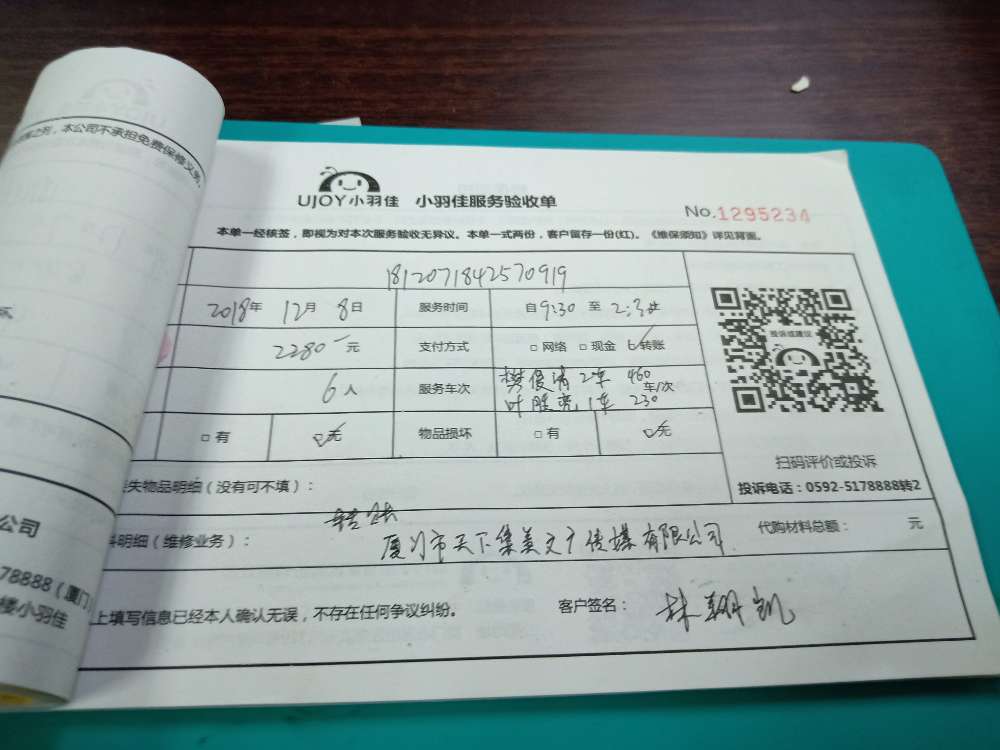 本公司不承担免费保修义务。
UJOY小羽佳 小羽佳服务验收单
No.1295234
本单一经核签，即视为对本次服务验收无异议。本单一式两份，客户留存一份(红)。《维保须知》详见背面。
1812071842570919
2018年 12月 8日 服务时间 自9:30 至 2:3
2280 元 支付方式 □ 网络 □ 现金 ☑转账
6人 服务车次 樊俊清 2车 460
车/次
叶胜亮 1车 230
□ 有 ☑无 物品损坏 □ 有 ☑无
投诉或建议
扫码评价或投诉
投诉电话：0592-5178888转2
失物品明细（没有可不填）：
转账
料明细（维修业务）： 厦门市天下集美文广传媒有限公司 代购材料总额： 元
上填写信息已经本人确认无误，不存在任何争议纠纷。 客户签名： 林翔凯
公司
78888（厦门）
小羽佳